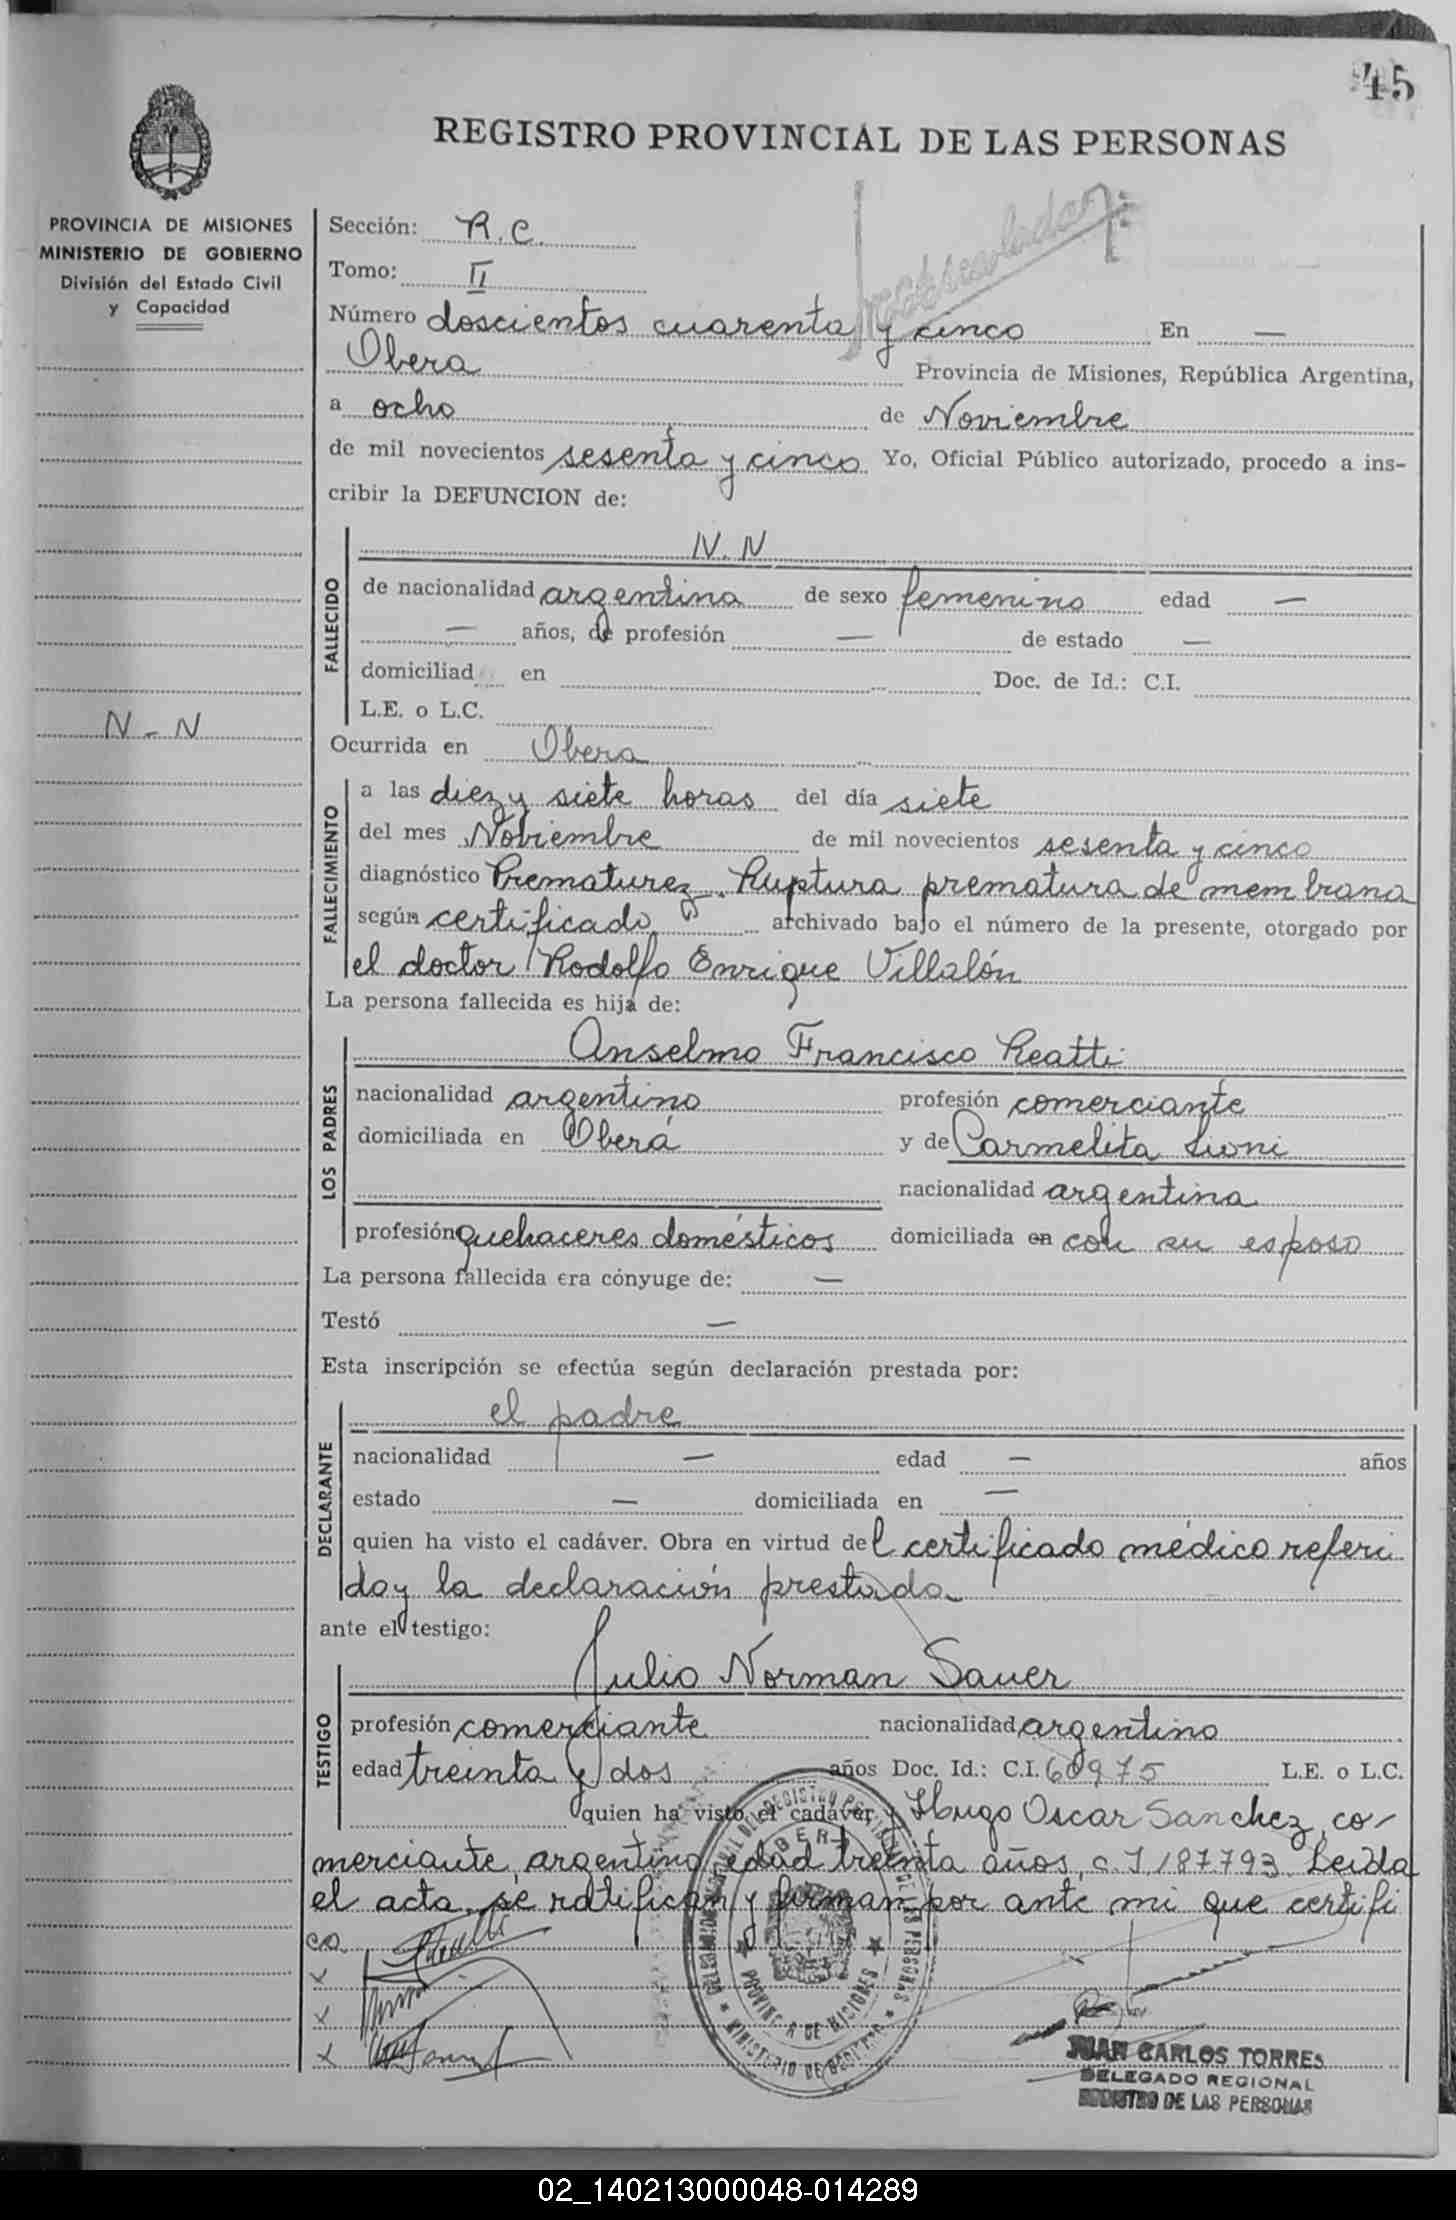 45
REGISTRO PROVINCIAL DE LAS PERSONAS
PROVINCIA DE MISIONES
MINISTERIO DE GOBIERNO
División del Estado Civil
y Capacidad
N-N
Sección: R.C.
Tomo: II
Número doscientos cuarenta y cinco En —
Obera Provincia de Misiones, República Argentina,
a ocho de Noviembre
de mil novecientos sesenta y cinco Yo, Oficial Público autorizado, procedo a ins-
cribir la DEFUNCION de:
FALLECIDO
N.N
de nacionalidad argentina de sexo femenino edad —
— años, de profesión — de estado —
domiciliad en Doc. de Id.: C.I.
L.E. o L.C.
Ocurrida en Obera
FALLECIMIENTO
a las diez y siete horas del día siete
del mes Nobiembre de mil novecientos sesenta y cinco
diagnóstico Prematurez. Ruptura prematura de membrana
según certificado archivado bajo el número de la presente, otorgado por
el doctor Rodolfo Enrique Villalón
La persona fallecida es hija de:
LOS PADRES
Anselmo Francisco Reatti
nacionalidad argentino profesión comerciante
domiciliada en Oberá y de Carmelita Lioni
nacionalidad argentina
profesión quehaceres domésticos domiciliada en con su esposo
La persona fallecida era cónyuge de: —
Testó —
Esta inscripción se efectúa según declaración prestada por:
DECLARANTE
el padre
nacionalidad — edad — años
estado — domiciliada en —
quien ha visto el cadáver. Obra en virtud del certificado médico referi
do y la declaración prestada
ante el testigo:
TESTIGO
Julio Norman Sauer
profesión comerciante nacionalidad argentino
edad treinta y dos años Doc. Id.: C.I. 60975 L.E. o L.C.
quien ha visto el cadáver y Hugo Oscar Sanchez, co-
merciante, argentino, edad treinta años, c.I 187793. Leida
el acta, se ratifican y firman por ante mi que certifi
co.
x
x
x
MINISTERIO DE GOBIERNO
PROVINCIA DE MISIONES
JUAN CARLOS TORRES
DELEGADO REGIONAL
REGISTRO DE LAS PERSONAS
02_140213000048-014289